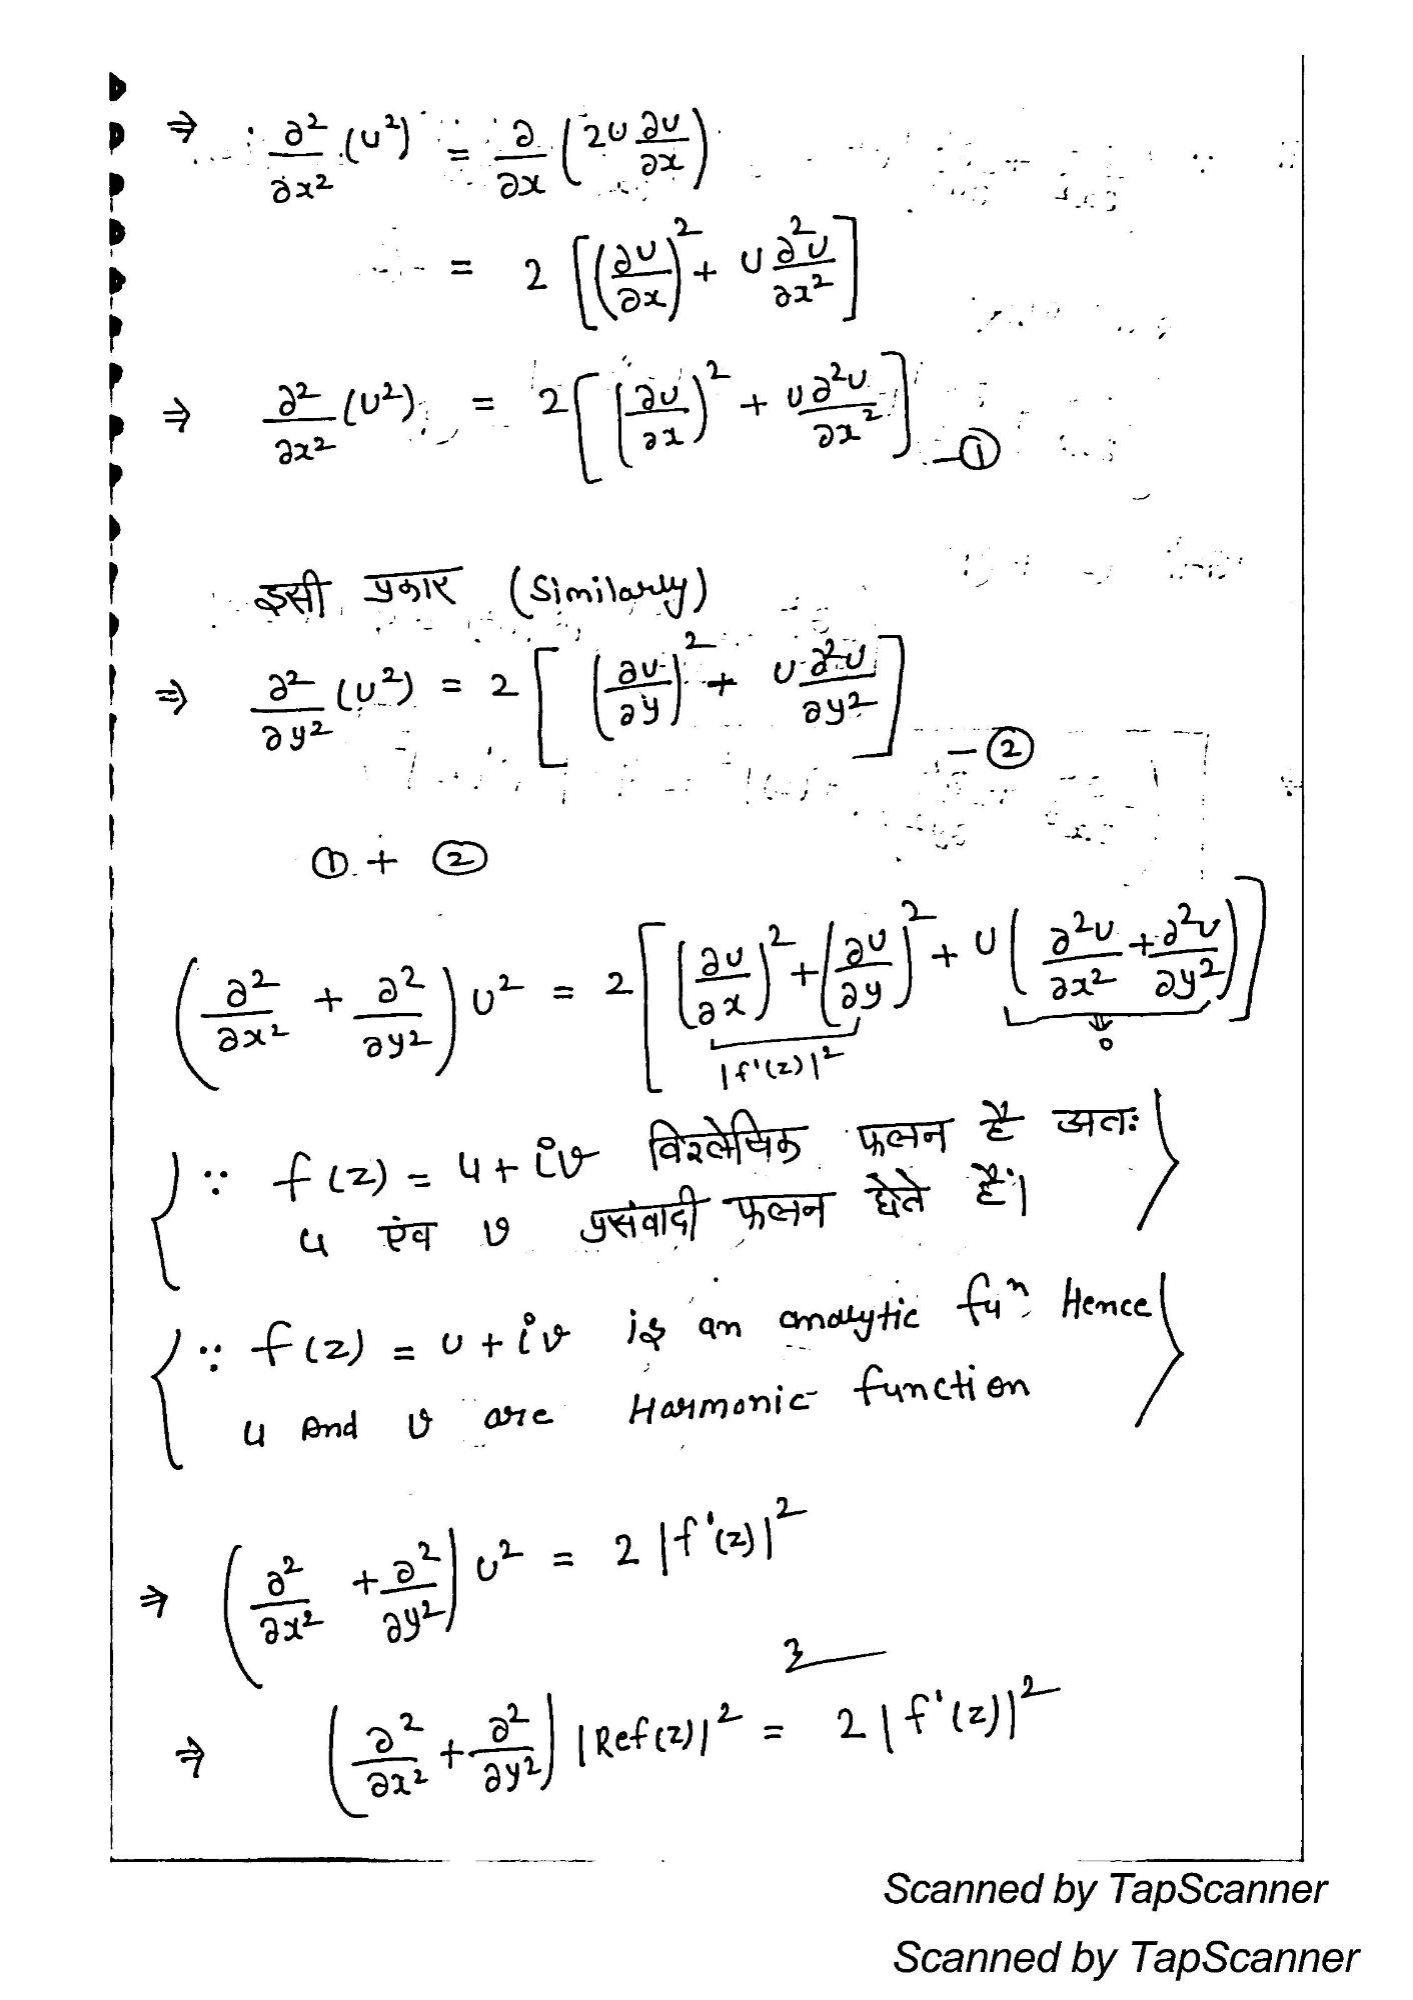 ⇒ ∂²/∂x² (u²) = ∂/∂x (2u ∂u/∂x)
= 2 [(∂u/∂x)² + u ∂²u/∂x²]
⇒ ∂²/∂x² (u²) = 2 [(∂u/∂x)² + u ∂²u/∂x²] —①
इसी प्रकार (Similarly)
⇒ ∂²/∂y² (u²) = 2 [(∂u/∂y)² + u ∂²u/∂y²] —②
① + ②
(∂²/∂x² + ∂²/∂y²) u² = 2 [(∂u/∂x)² + (∂u/∂y)² + u (∂²u/∂x² + ∂²u/∂y²)]
|f'(z)|² ⇓ 0
{∵ f(z) = u + iv विश्लेषिक फलन है अतः
u एंव v प्रसंवादी फलन होते हैं।}
{∵ f(z) = u + iv is an analytic fuⁿ Hence
u and v are Harmonic function}
⇒ (∂²/∂x² + ∂²/∂y²) u² = 2 |f'(z)|²
3 —
⇒ (∂²/∂x² + ∂²/∂y²) |Ref(z)|² = 2 |f'(z)|²
Scanned by TapScanner
Scanned by TapScanner